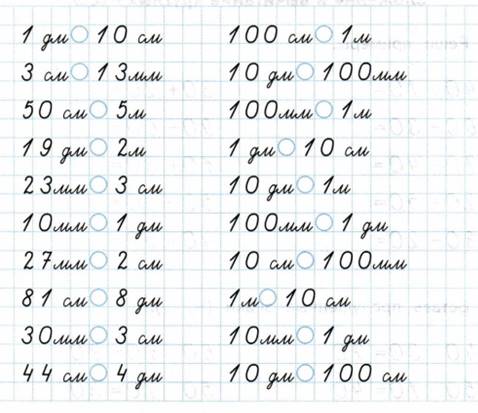 1 дм ○ 10 см 100 см ○ 1м
3 см ○ 13мм 10 дм ○ 100мм
50 см ○ 5м 100мм ○ 1м
19 дм ○ 2м 1 дм ○ 10 см
23мм ○ 3 см 10 дм ○ 1м
10мм ○ 1 дм 100мм ○ 1 дм
27мм ○ 2 см 10 см ○ 100мм
81 см ○ 8 дм 1м ○ 10 см
30мм ○ 3 см 10мм ○ 1 дм
44 см ○ 4 дм 10 дм ○ 100 см